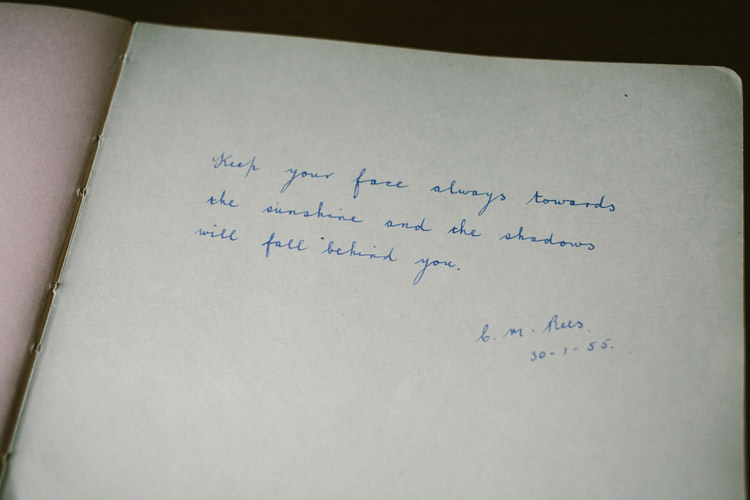 Keep your face always towards
the sunshine and the shadows
will fall behind you.
C. M. Rees.
30-1-55.